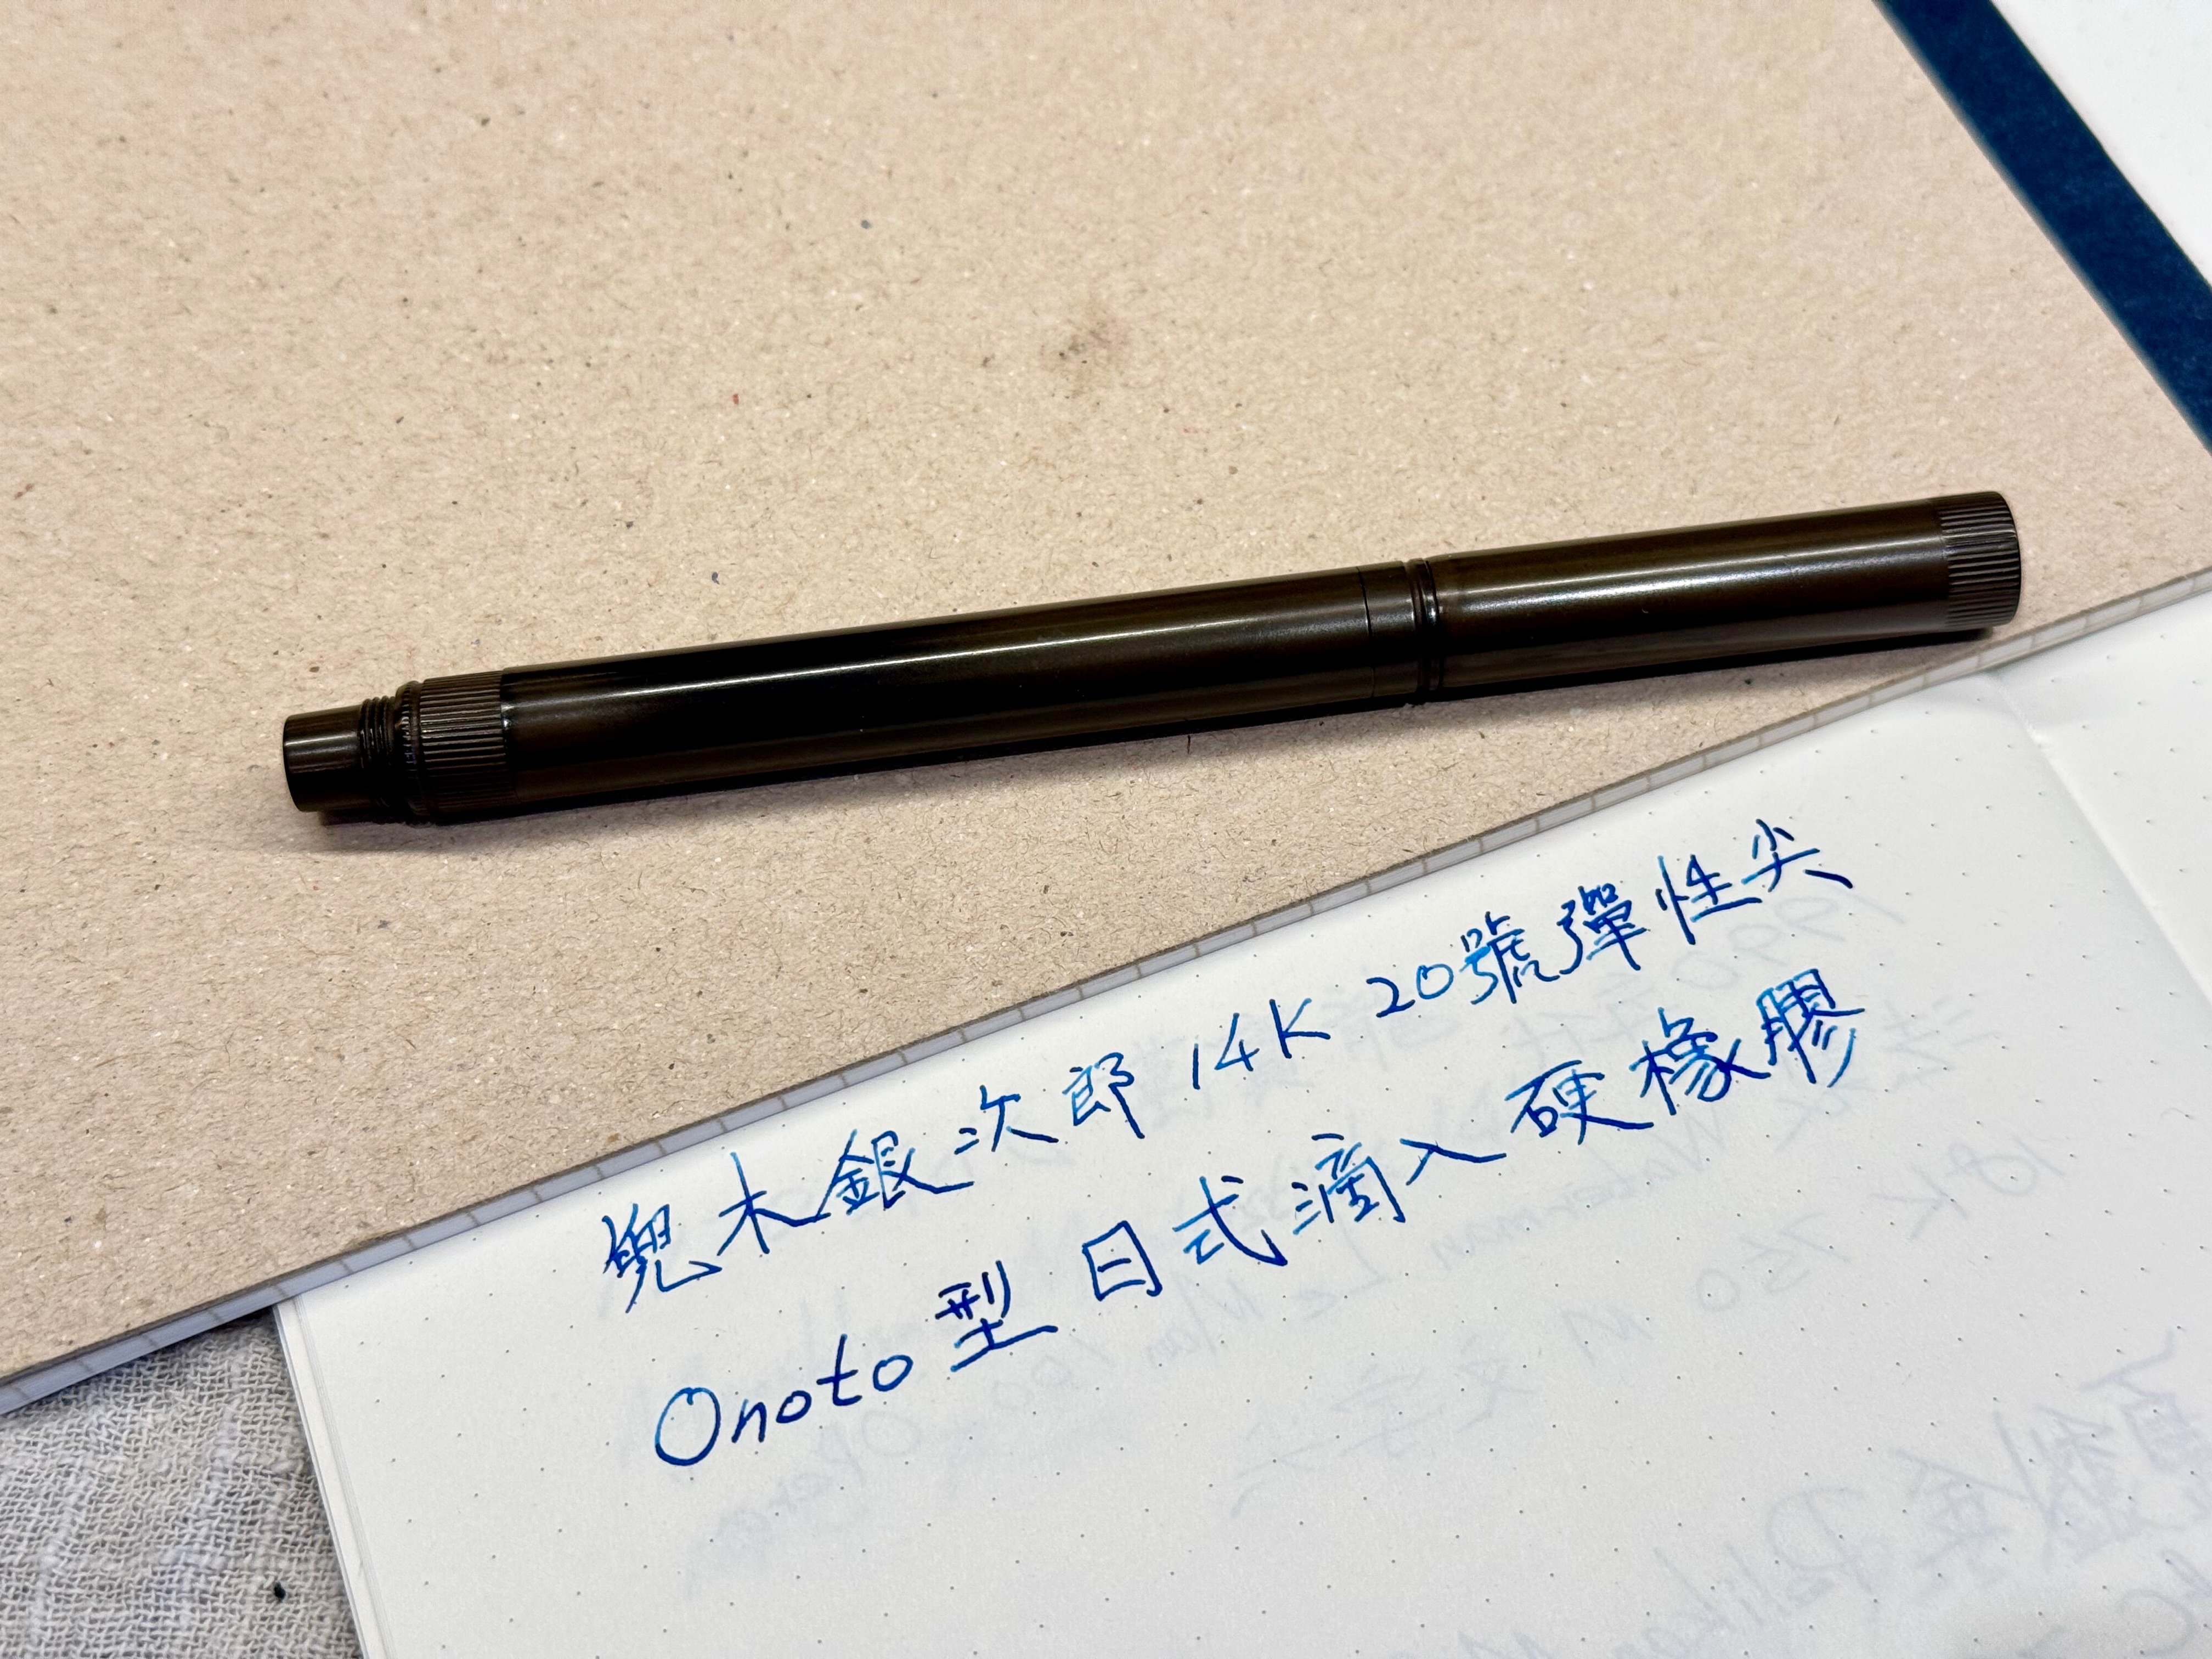 兜木銀次郎 14K 20號彈性尖
Onoto型 日式滴入硬橡膠